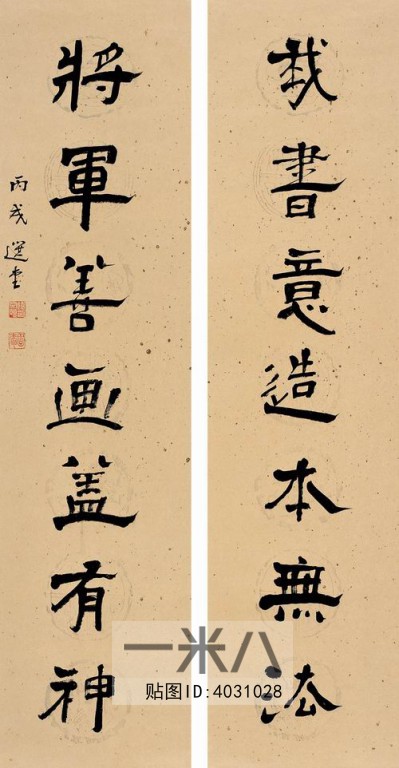 我書意造本無法
將軍善畫蓋有神
丙戌 選堂
一米八
贴图ID:4031028